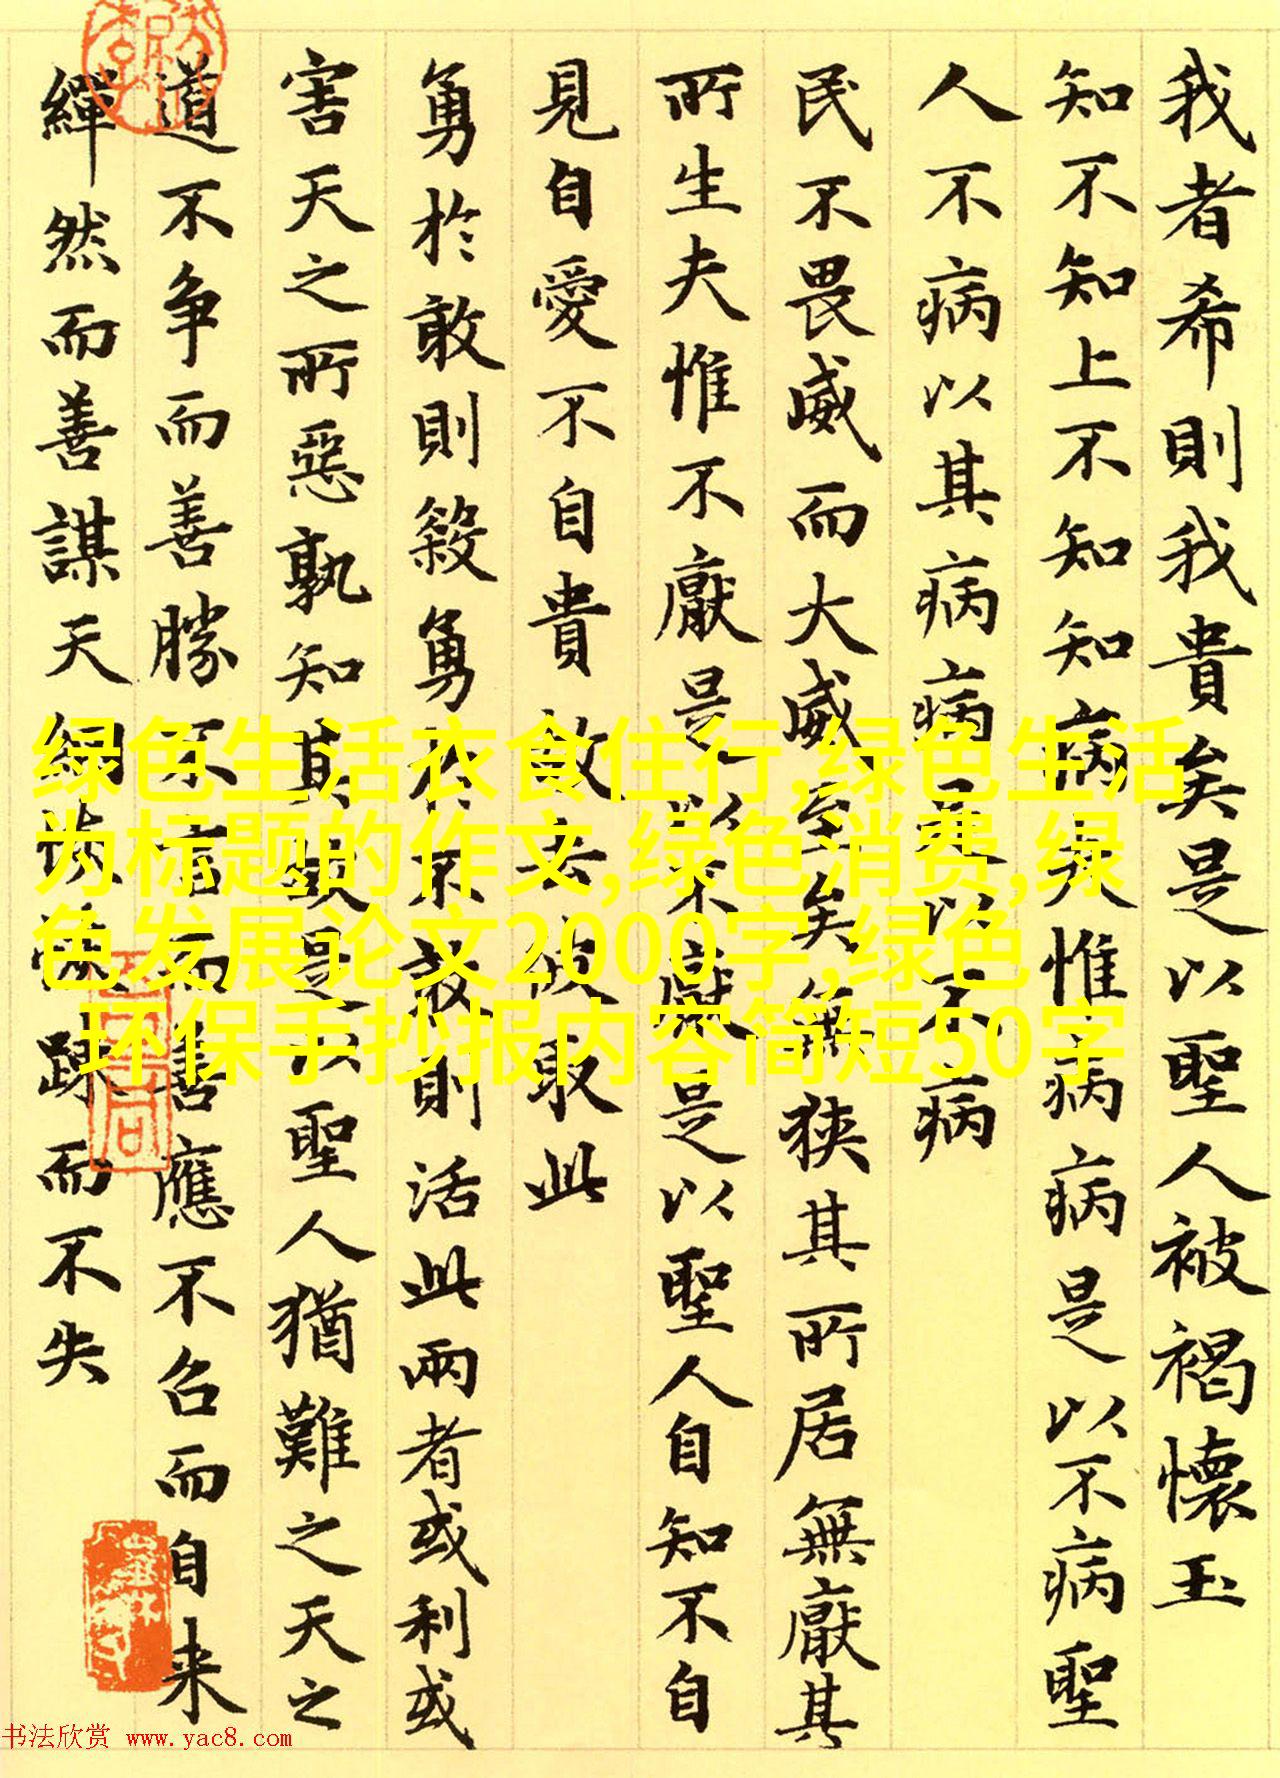 我者希則我貴矣是以聖人被褐懷玉
知不知上不知知病夫惟病病是以不病聖
人不病以其病病是以不病
民不畏威而大威至矣無狹其所居無厭其
所生夫惟不厭是以不厭是以聖人自知不自
見自愛不自貴故去彼取此
勇於敢則殺勇於不敢則活此兩者或利或
害天之所惡孰知其故是以聖人猶難之天之
道不争而善勝不言而善應不召而自来
繟然而善謀天網恢恢踈而不失
绿色生活衣食住行,绿色生活
为标题的作文,绿色消费,绿
色发展论文2000字,绿色
环保手抄报内容简短50字
书法欣赏 www.yac8.com